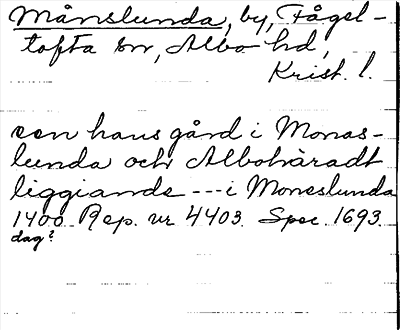 Månslunda, by, Fågel-
tofta sn, Albo hd,
Krist. l.
een hans gård i Monas-
lunda och Albohäradt
liggiande --- i Moneslunda
1400 Rep. nr 4403. Spec. 1693.
dag?